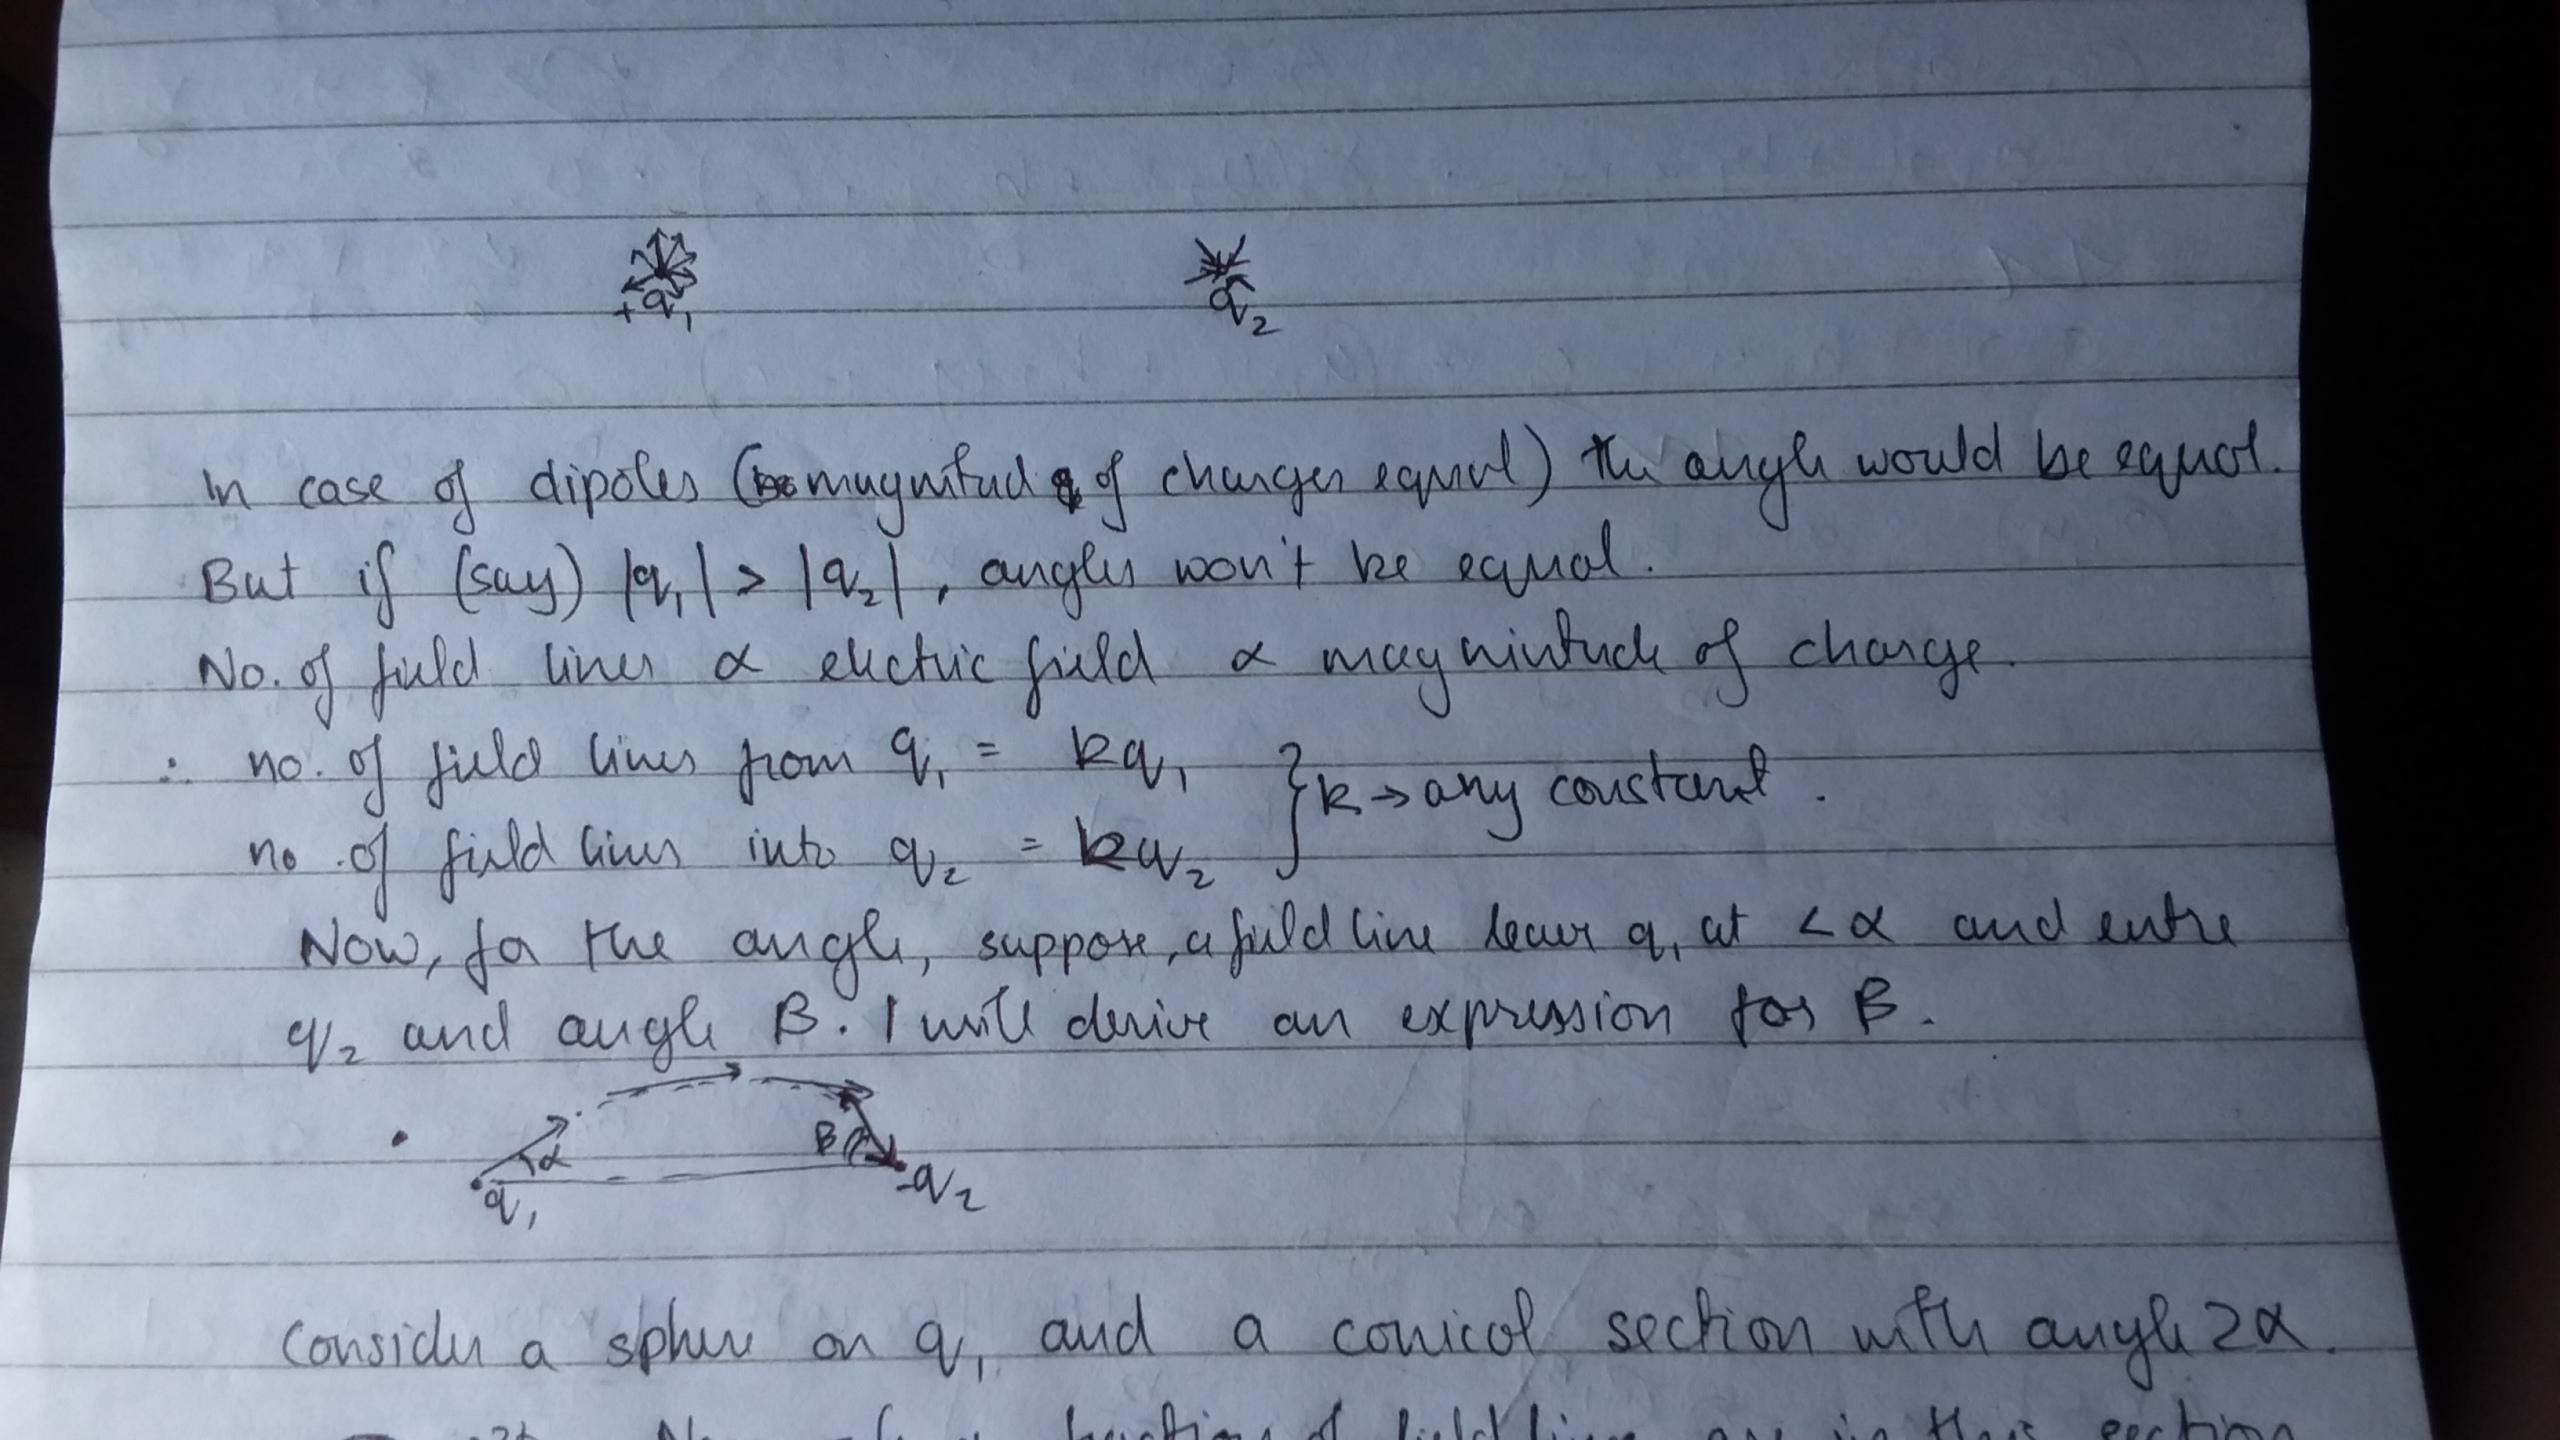 +q₁ q₂
In case of dipoles (magnitude of charges equal) the angle would be equal.
But if (say) |q₁| > |q₂|, angles won't be equal.
No. of field lines α electric field α magnintude of charge.
∴ no. of field lines from q₁ = kq₁
}k→any constant.
no. of field lines into q₂ = kq₂
Now, for the angle, suppose, a field line leaves q₁ at <α and entre
q₂ and angle B. I will derive an expression for B.
α B
q₁ -q₂
Consider a sphere on q₁ and a conical section with angle 2α.
fraction of field lines are in this section